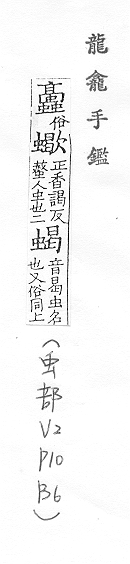 龍龕手鑑
俗
蠍
正香謁反
螫人虫也二
蝎
音曷虫名
也又俗同上
(虫部
V2
P10
B6)